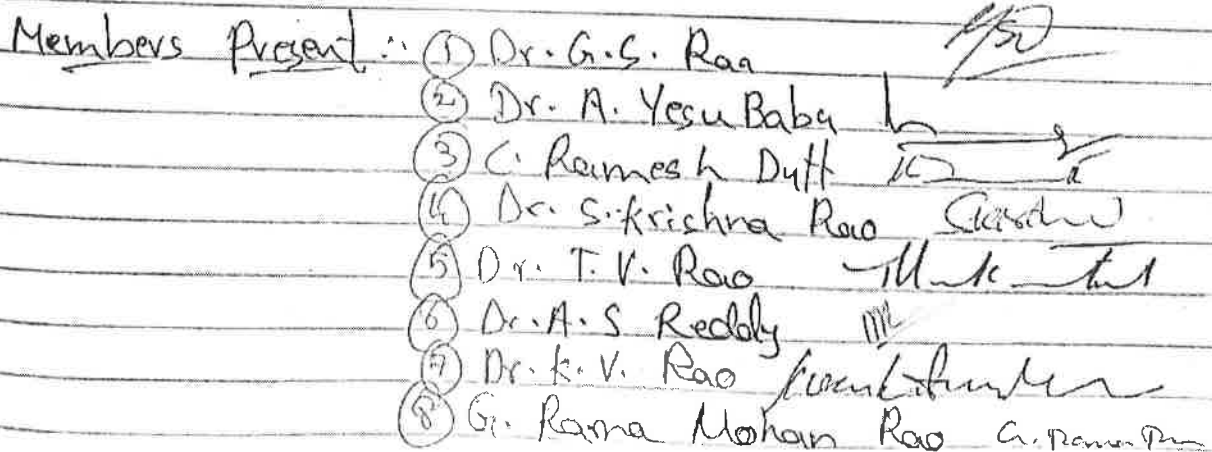 Members Present : ① Dr. G.S. Rao
② Dr. A. Yesu Babu
③ C. Ramesh Dutt
④ Dr. S. Krishna Rao
⑤ Dr. T. V. Rao
⑥ Dr. A. S Reddy
⑦ Dr. K. V. Rao
⑧ G. Rama Mohan Rao